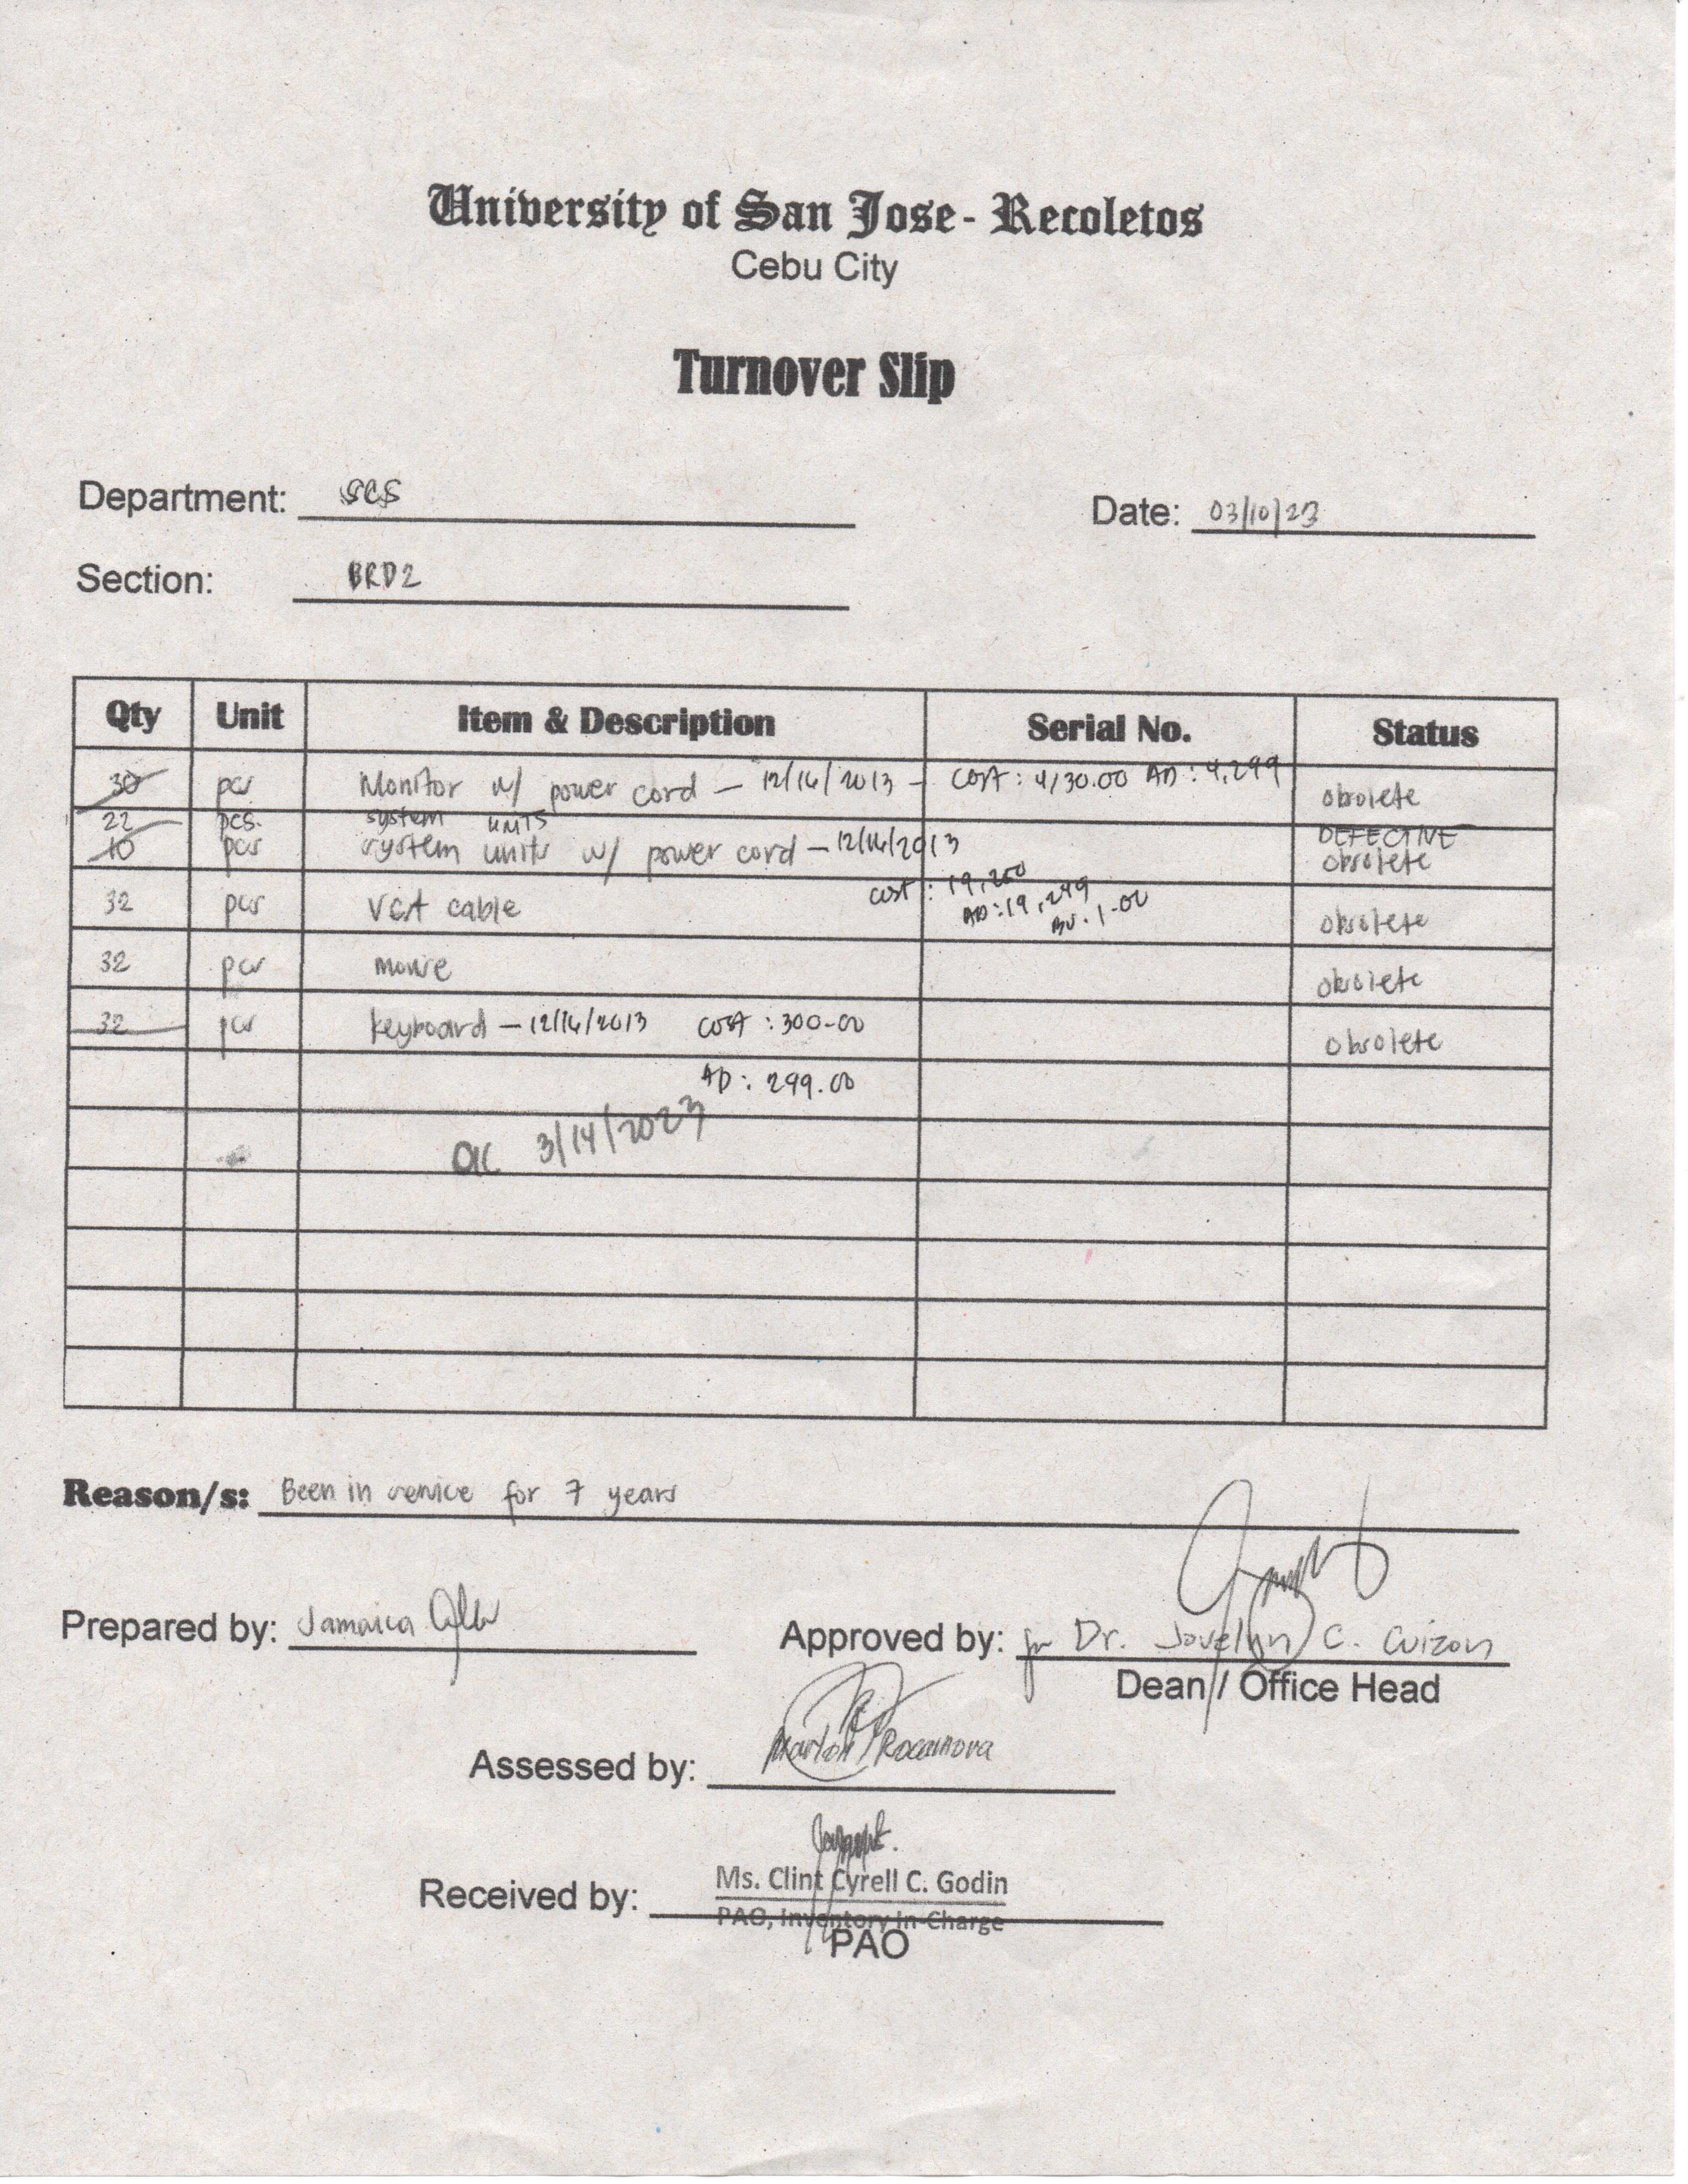 University of San Jose- Recoletos
Cebu City
Turnover Slip
Department: SCS
Date: 03/10/23
Section: BRD2
Qty Unit Item & Description Serial No. Status
30 pcs Monitor w/ power cord — 12/16/2013 - COST : 4,130.00 AD : 4,299 obsolete
22 pcs. system UNITS DEFECTIVE
10 pcs system units w/ power cord — 12/16/2013 obsolete
COST : 19,200
AD : 19,299
BV : 1.00
32 pcs VGA cable obsolete
32 pcs mouse obsolete
32 pcs keyboard — 12/16/2013 COST : 300.00 obsolete
AD : 299.00
OK 3/14/2023
Reason/s: Been in service for 7 years
Prepared by: Jamaica
Approved by: for Dr. Jovelyn C. Cuizon
Dean / Office Head
Assessed by: Marlon
Received by: Ms. Clint Cyrell C. Godin
PAO, Inventory In-Charge
PAO